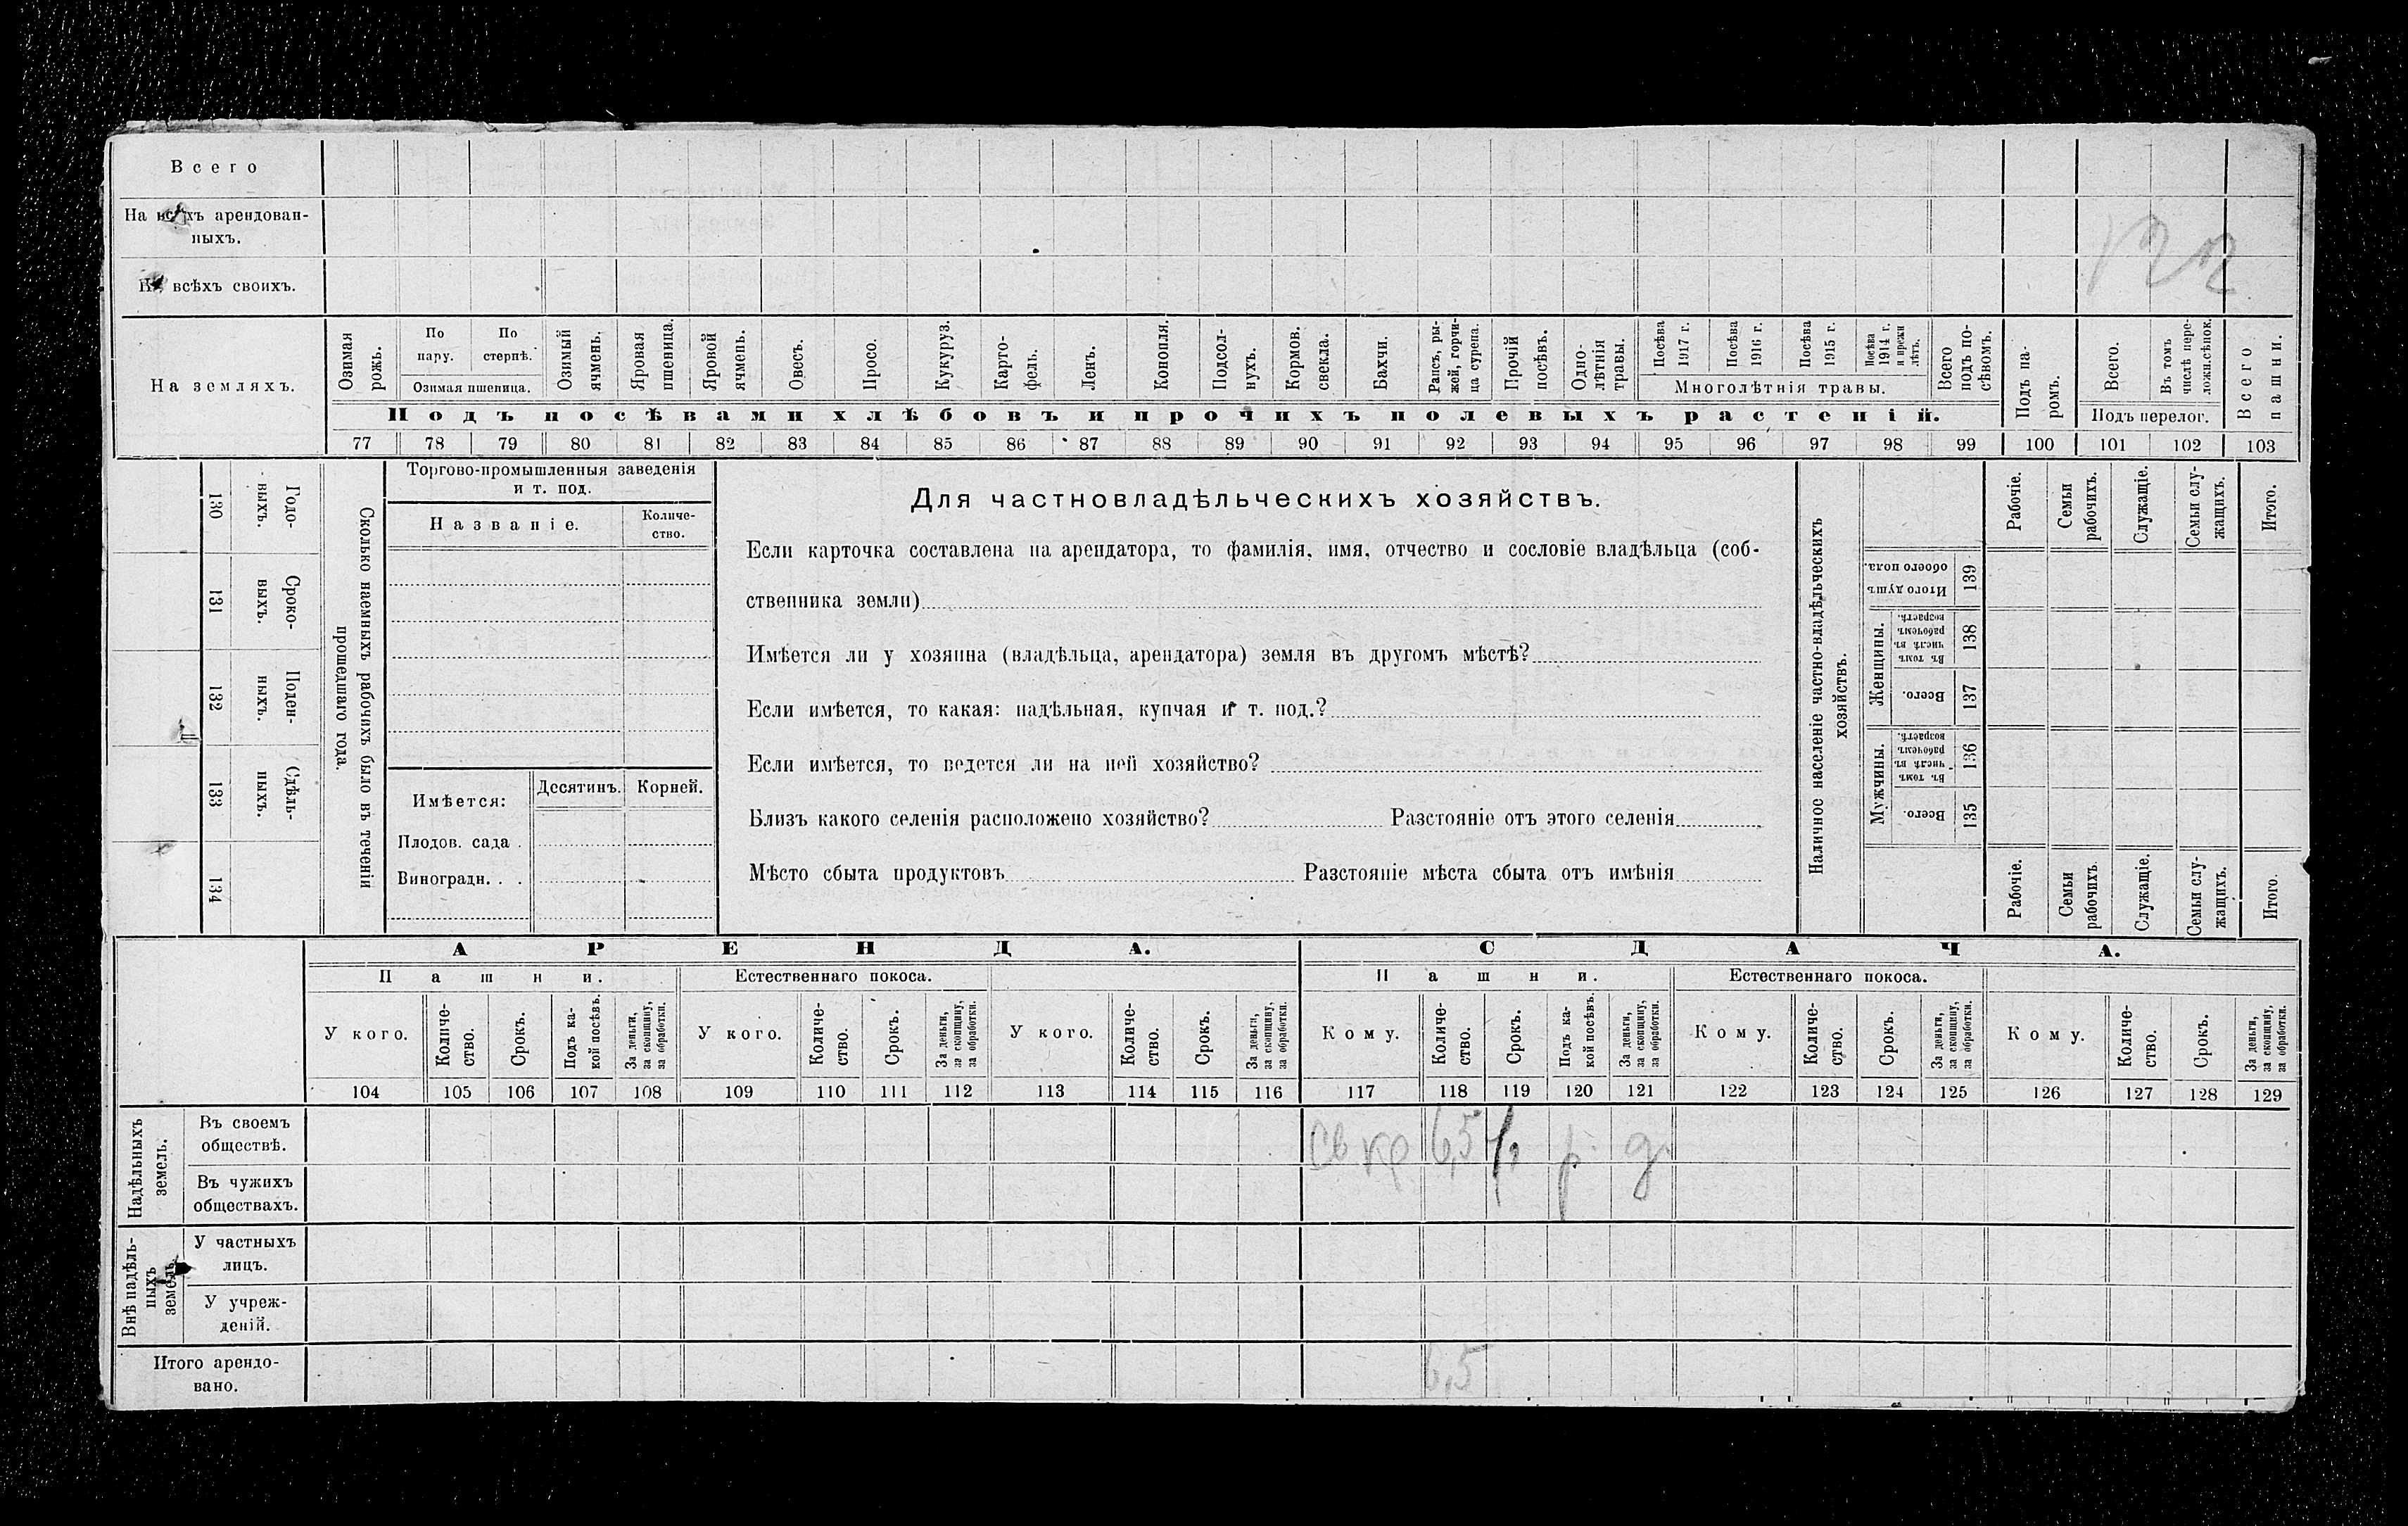 Всего
На всѣхъ арендован-
ныхъ.
На всѣхъ своихъ.
122
На земляхъ.
Озимая рожь.
По пару.
По стернѣ.
Озимая пшеница.
Озимый ячмень.
Яровая пшеница.
Яровой ячмень.
Овесъ.
Просо.
Кукуруз.
Карто-
фель.
Ленъ.
Конопля.
Подсол-
нухъ.
Кормов. свекла.
Бахчи.
Рапсъ, ры-
жей, горчи-
ца сурепа.
Прочій посѣвъ.
Одно-
лѣтнія травы.
Посѣва 1917 г.
Посѣва 1916 г.
Посѣва 1915 г.
Посѣва 1914 г. и прежн лѣтъ.
Многолѣтнія травы.
Всего подъ по-
сѣвомъ.
Подъ посѣвами хлѣбовъ и прочихъ полевыхъ растеній.
Подъ па-
ромъ.
Всего.
Въ томъ числѣ пере-
ложн.сѣнок.
Подъ перелог.
Всего пашни.
77 78 79 80 81 82 83 84 85 86 87 88 89 90 91 92 93 94 95 96 97 98 99 100 101 102 103
Годо-
выхъ.
130
Сроко-
выхъ.
131
Поден-
ныхъ.
132
Сдѣль-
ныхъ.
133
134
Сколько наемныхъ рабочихъ было въ теченіи
прошедшаго года.
Торгово-промышленныя заведенія
и т. под.
Названіе.
Количе-
ство.
Имѣется:
Десятинъ.
Корней.
Плодов. сада .
Виноградн. . .
Для частновладѣльческихъ хозяйствъ.
Если карточка составлена на арендатора, то фамилія, имя, отчество и сословіе владѣльца (соб-
ственника земли)
Имѣется ли у хозяина (владѣльца, арендатора) земля въ другомъ мѣстѣ?
Если имѣется, то какая: надѣльная, купчая и т. под.?
Если имѣется, то ведется ли на ней хозяйство?
Близъ какого селенія расположено хозяйство? Разстояніе отъ этого селенія
Мѣсто сбыта продуктовъ Разстояніе мѣста сбыта отъ имѣнія
Наличное населеніе частно-владѣльческихъ
хозяйствъ.
Рабочіе.
Семьи рабочихъ.
Служащіе.
Семьи слу-
жащихъ.
Итого.
Итого душъ обоего пола.
139
Женщины.
Въ томъ числѣ въ рабочемъ возрастѣ.
138
Всего.
137
Мужчины.
Въ томъ числѣ въ рабочемъ возрастѣ.
136
Всего.
135
Рабочіе.
Семьи рабочихъ
Служащіе.
Семьи слу-
жащихъ.
Итого.
АРЕНДА.
СДАЧА.
Пашни.
Естественнаго покоса.
Пашни.
Естественнаго покоса.
У кого.
Количе-
ство.
Срокъ.
Подъ ка-
кой посѣвъ.
За деньги, за скопщину, за обработки.
У кого.
Количе-
ство.
Срокъ.
За деньги, за скопщину, за обработки.
У кого.
Количе-
ство.
Срокъ.
За деньги, за скопщину, за обработки.
Кому.
Количе-
ство.
Срокъ.
Подъ ка-
кой посѣвъ.
За деньги, за скопщину, за обработки.
Кому.
Количе-
ство.
Срокъ.
За деньги, за скопщину, за обработки.
Кому.
Количе-
ство.
Срокъ.
За деньги, за скопщину, за обработки.
104 105 106 107 108 109 110 111 112 113 114 115 116 117 118 119 120 121 122 123 124 125 126 127 128 129
Надѣльныхъ
земель.
Въ своемъ
обществѣ.
св кр 6,5 р д.
Въ чужихъ
обществахъ.
Внѣ надѣль-
ныхъ
земель.
У частныхъ
лицъ.
У учреж-
деній.
Итого арендо-
вано.
6,5